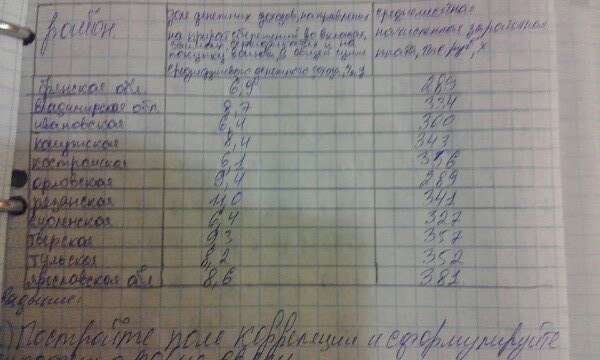 район
Доля денежных доходов, направленных
на прирост сбережений во вкладах,
займах, сертификатах и на
покупку валюты, в общей сумме
среднедушевого денежного дохода, %, y
среднемесячная
начисленная заработная
плата, тыс. руб., x
Брянская обл. 6,9 289
Владимирская обл. 8,7 334
Ивановская 6,4 360
Калужская 8,4 343
Костромская 6,1 356
Орловская 9,4 289
Рязанская 11,0 341
Смоленская 6,4 327
Тверская 9,3 357
Тульская 8,2 352
Ярославская обл. 8,6 381
Задание:
Постройте поле корреляции и сформулируйте